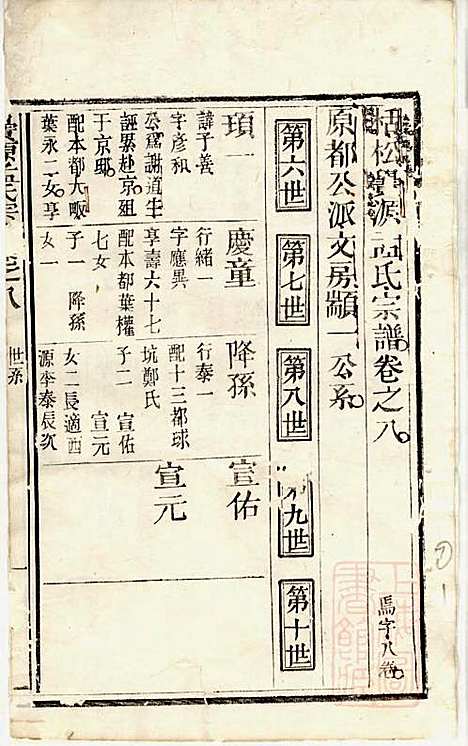 括松𤅀源項氏宗譜卷之八
馬字八卷
原都公派文房顓一公系
第六世
第七世
第八世
第九世
第十世
項一
諱子善
字彥和
公為謝道生
誣累赴京殂
于京邸
配本都大畈
葉永二女享
慶童
行緒一
字應異
享壽六十七
配本都葉權
七女
子一 降孫
女一
降孫
行泰一
配十三都球
坑鄭氏
子二 宣佑
宣元
女二長適西
源李泰辰次
宣佑
宣元
氏宗
之八
世系